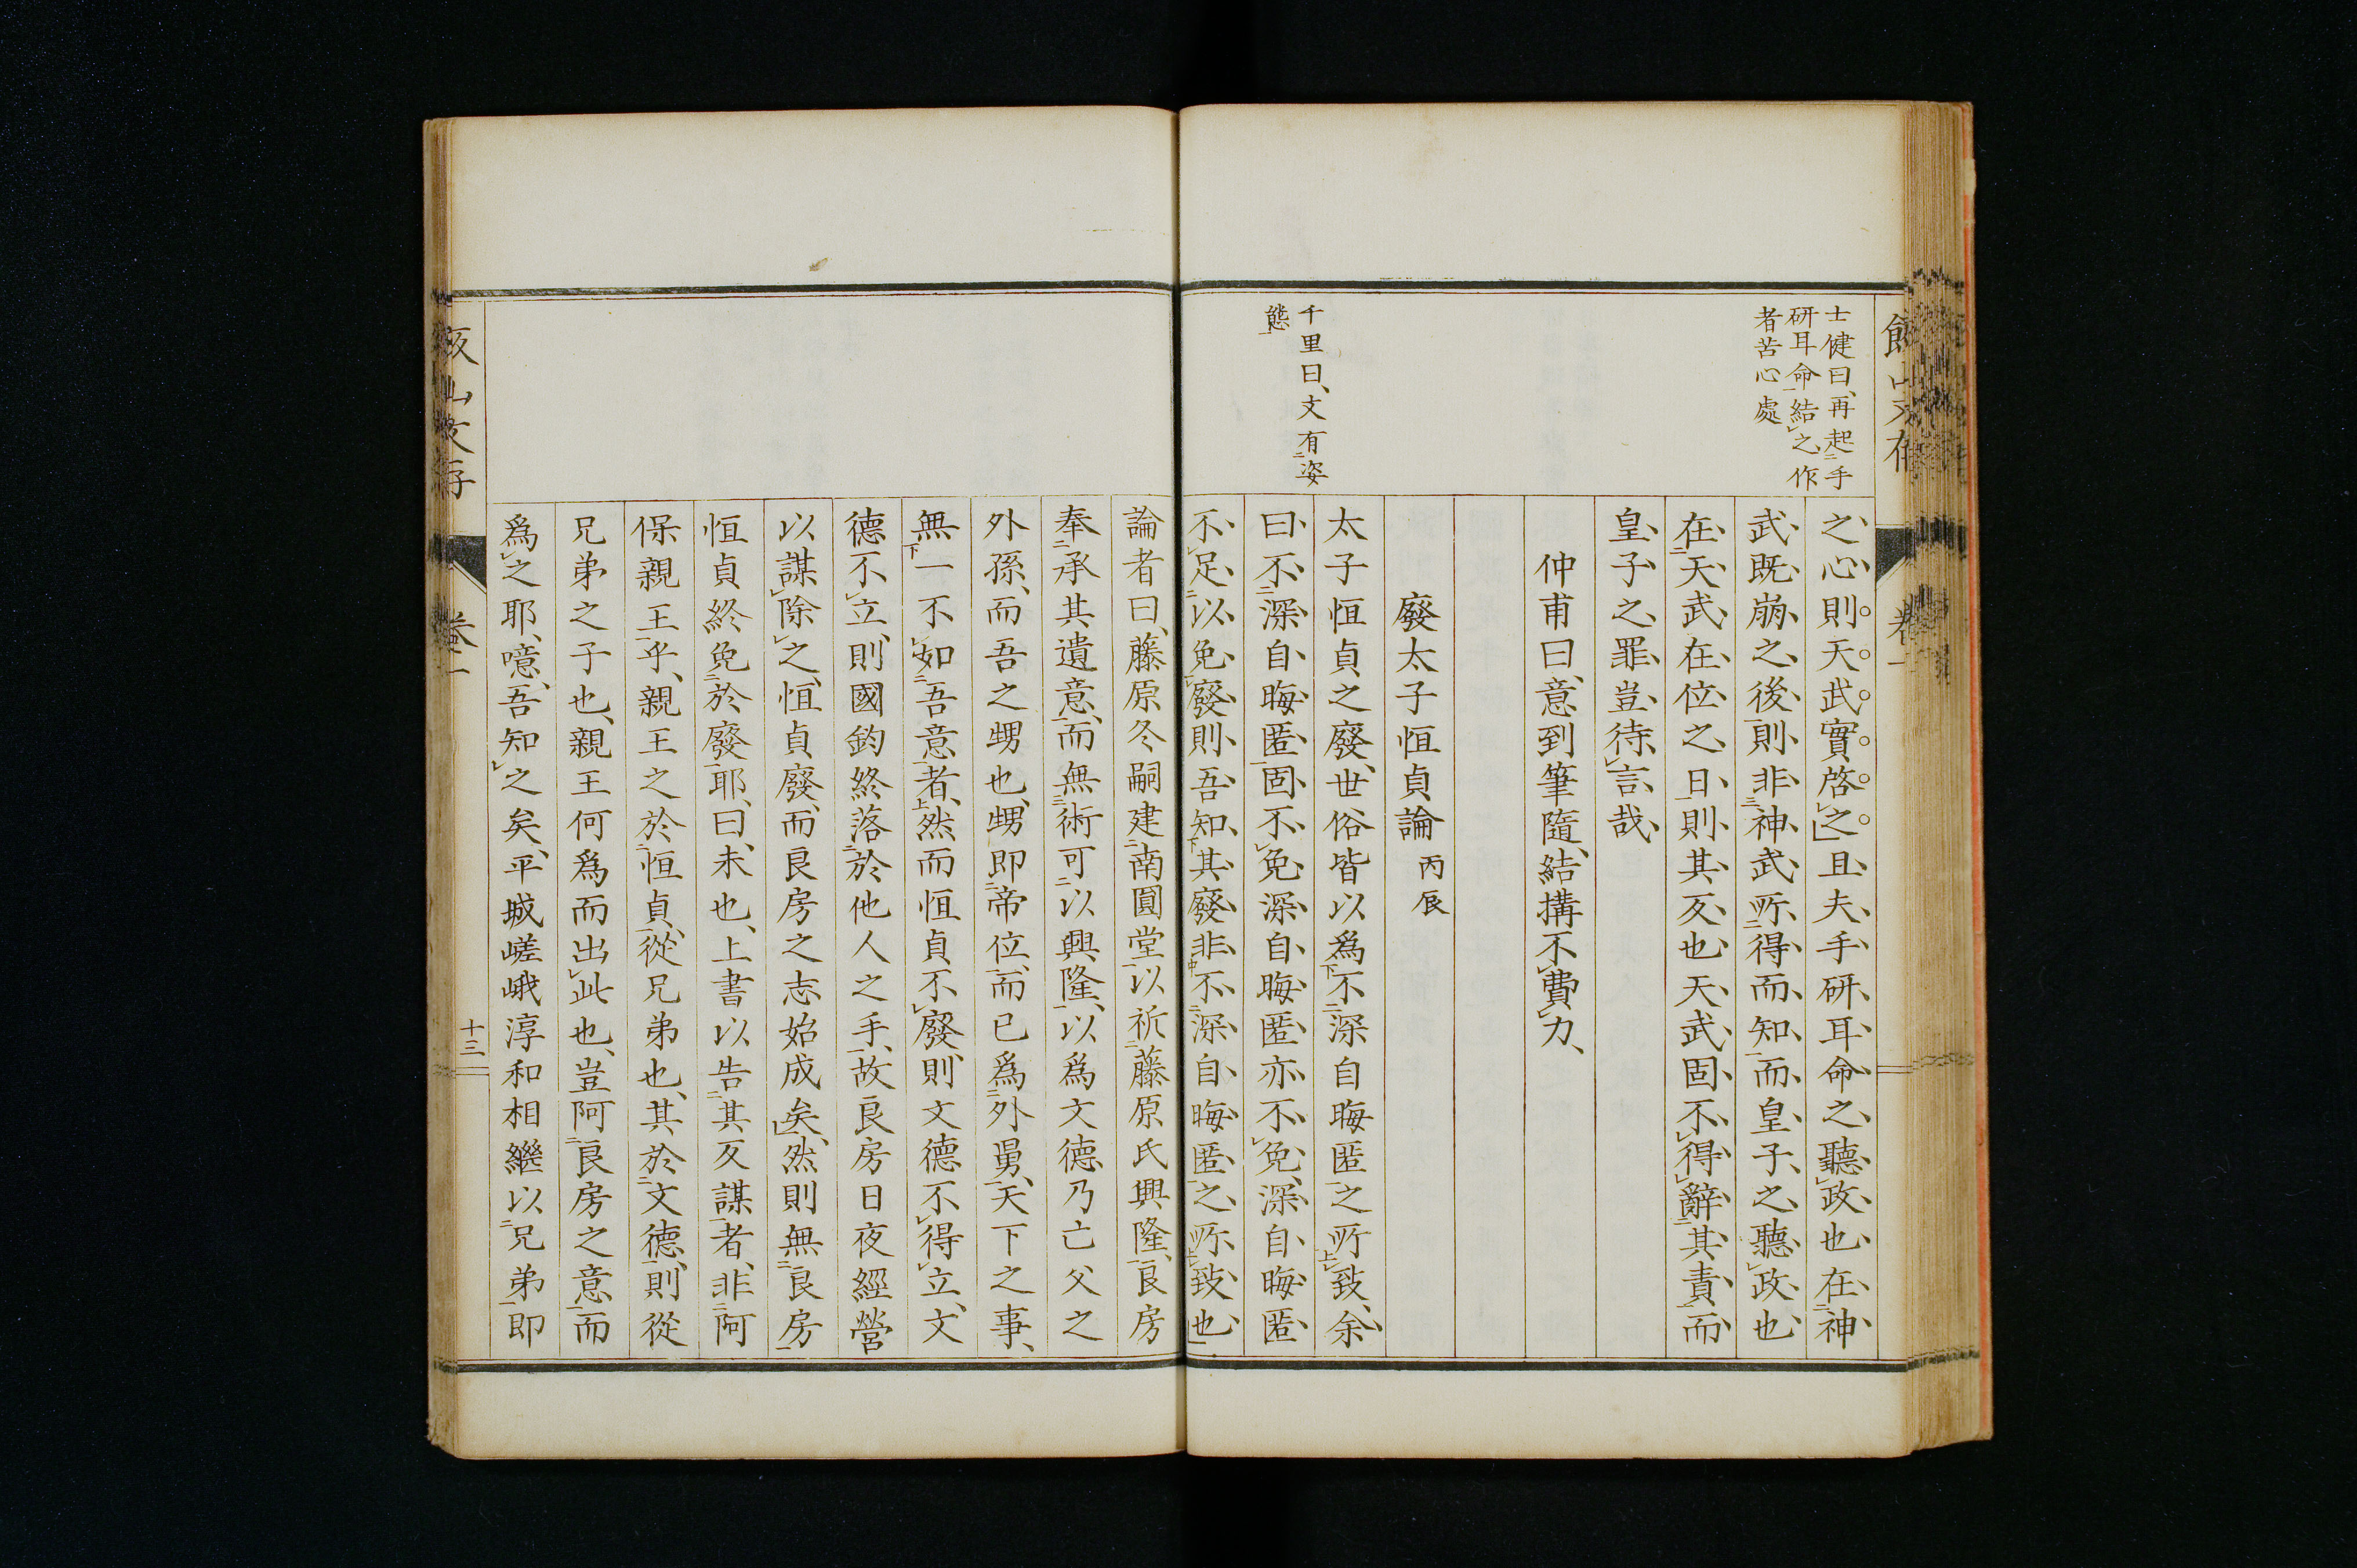 士健曰、再起手
研耳命結之作
者苦心處
之心、則天武實啓之、且夫手研耳命之聽政也、在神
武既崩之後、則非神武所得而知、而皇子之聽政也
在天武在位之日、則其反也、天武固不得辭其責、而
皇子之罪、豈待言哉、
仲甫曰、意到筆隨、結搆不費力、
廢太子恒貞論 丙辰
千里曰、文有姿
態
太子恒貞之廢、世俗皆以爲不深自晦匿之所致、余
曰、不深自晦匿、固不免、深自晦匿、亦不免、深自晦匿
不足以免廢、則吾知其廢非不深自晦匿之所致也
論者曰、藤原冬嗣建南圓堂、以祈藤原氏興隆、良房
奉承其遺意、而無術可以興隆、以爲文德乃亡父之
外孫、而吾之甥也、甥即帝位、而已爲外舅、天下之事、
無一不如吾意者、然而恒貞不廢、則文德不得立、文
德不立、則國鈞終落於他人之手、故良房日夜經營
以謀除之、恒貞廢、而良房之志始成矣、然則無良房
恒貞終免於廢耶、曰、未也、上書以告其反謀者、非阿
保親王乎、親王之於恒貞、從兄弟也、其於文德、則從
兄弟之子也、親王何爲而出此也、豈阿良房之意而
爲之耶、噫、吾知之矣、平城嵯峨淳和相繼以兄弟即
山文存
卷一
十三